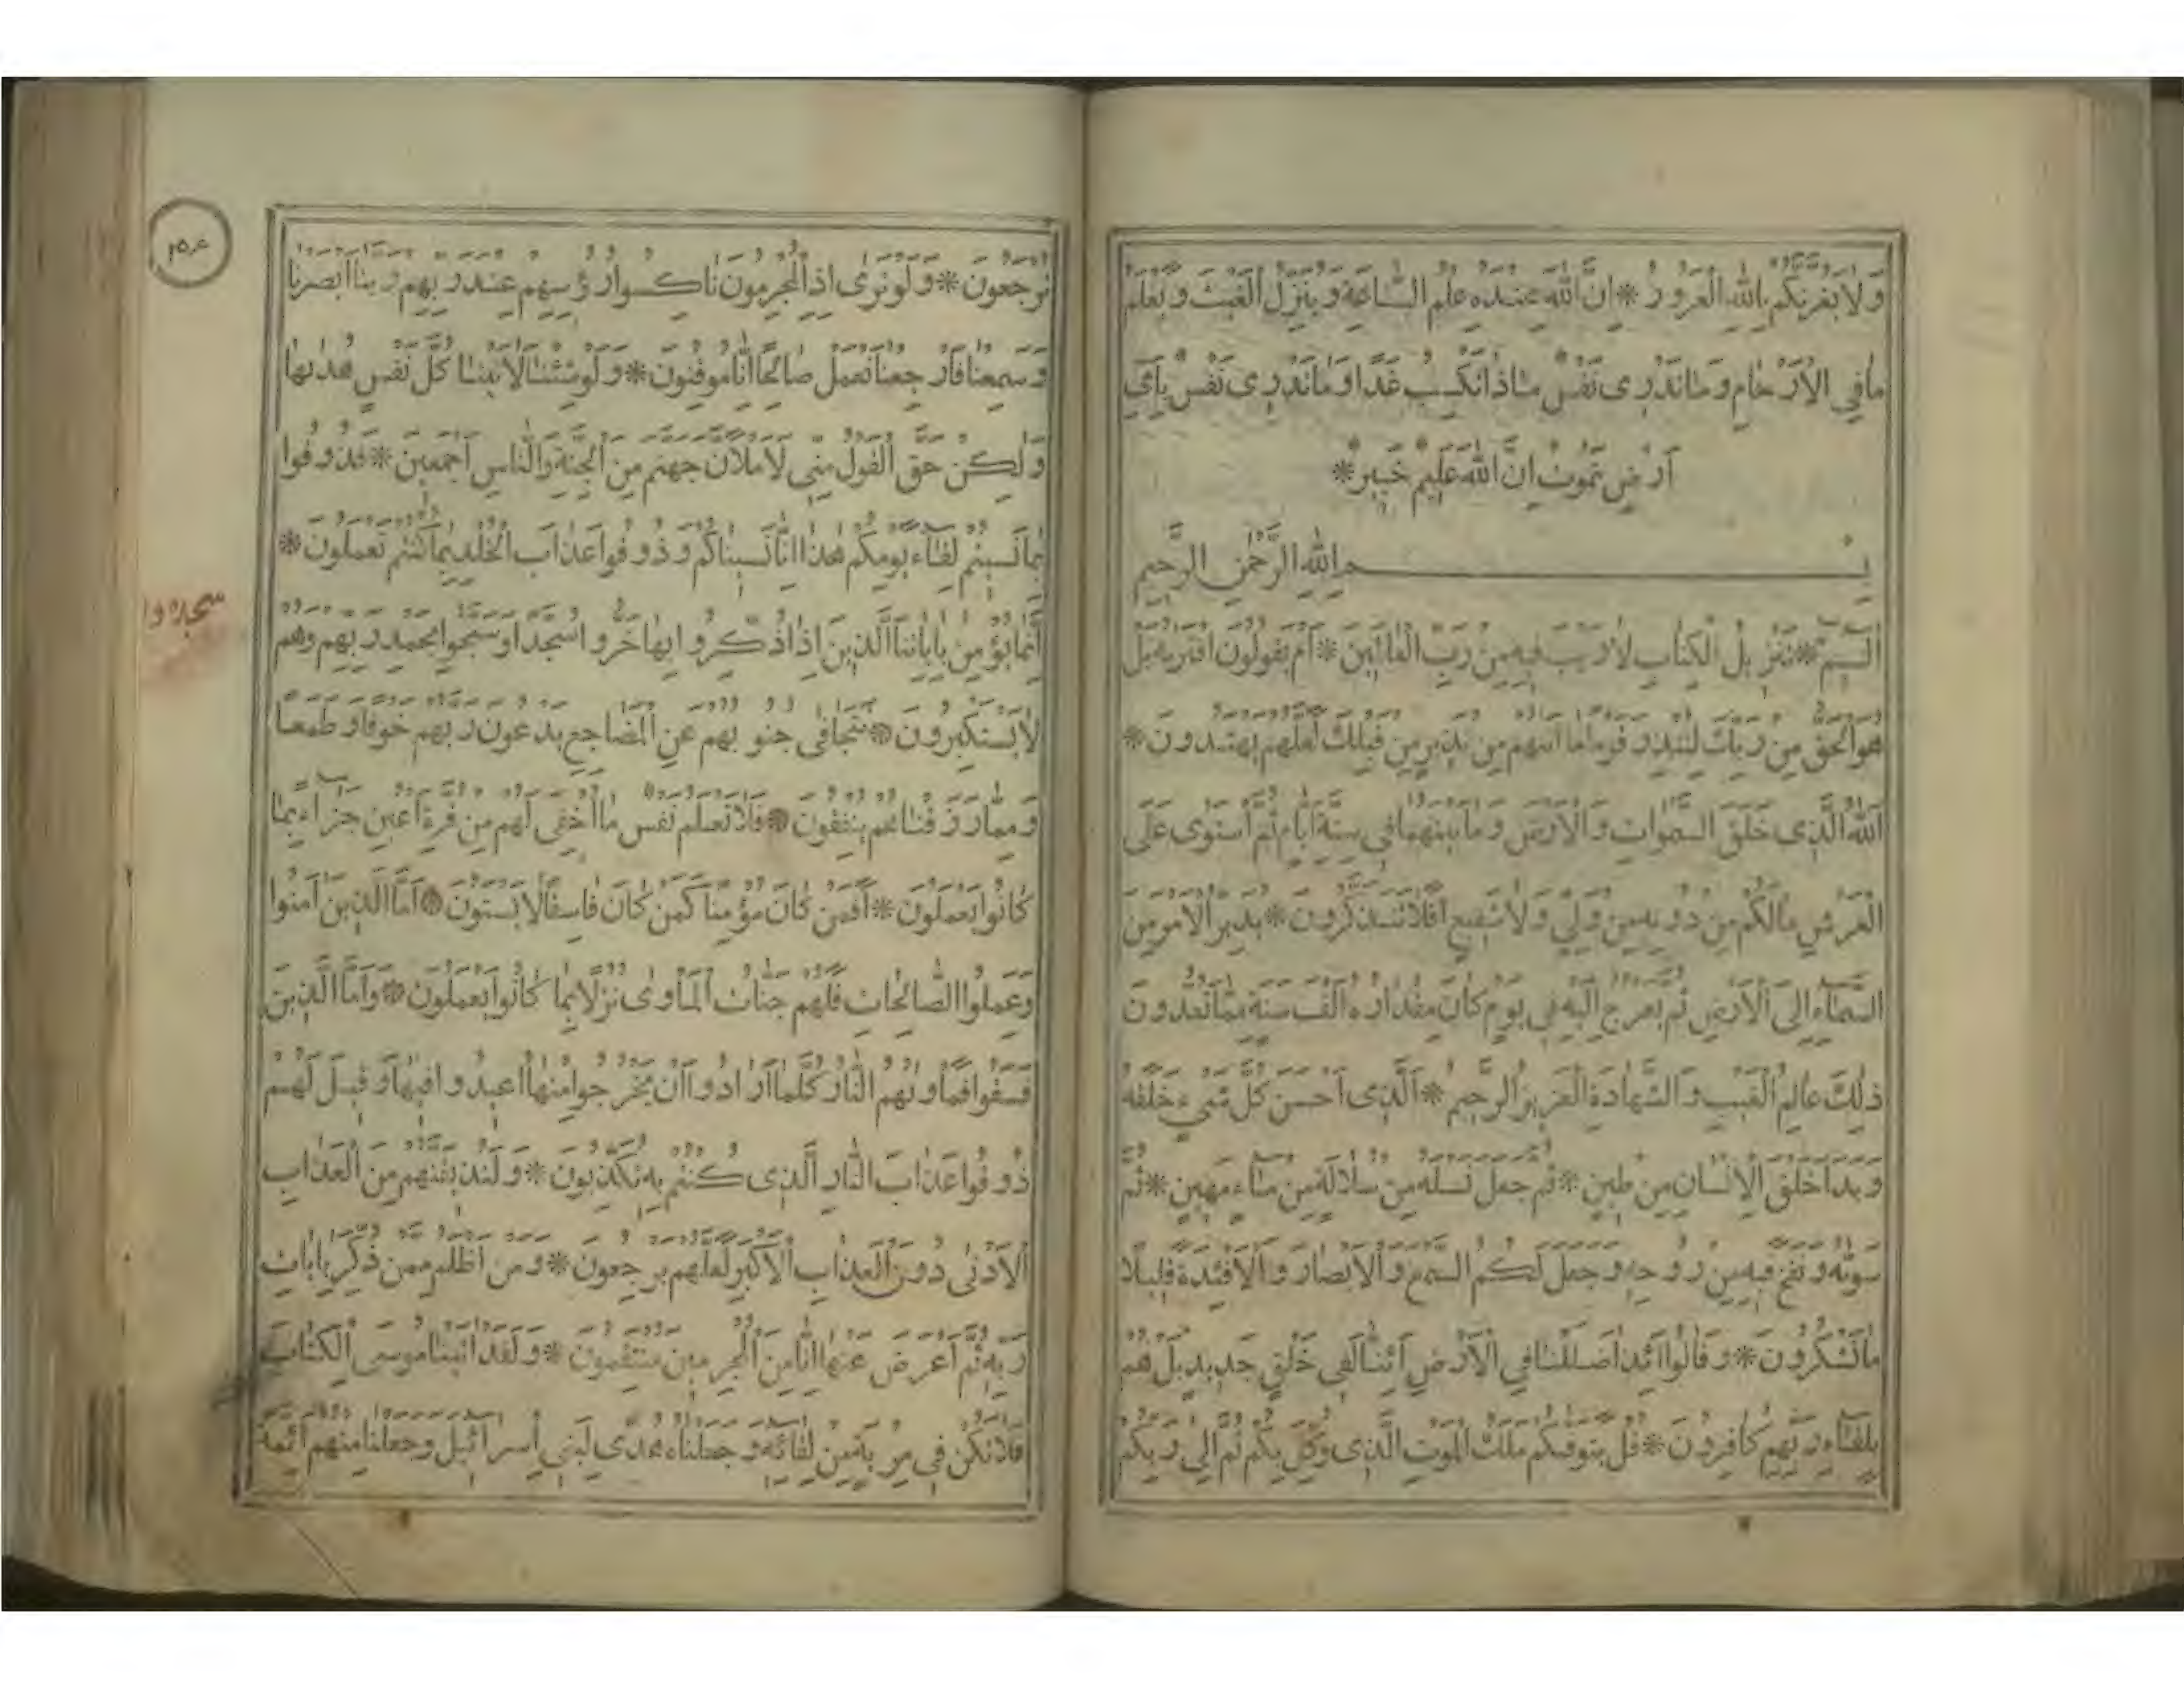 وَلَا يَغُرَّنَّكُمْ بِاللّٰهِ الْغَرُورُ * اِنَّ اللّٰهَ عِنْدَهُ عِلْمُ السَّاعَةِ وَيُنَزِّلُ الْغَيْثَ وَيَعْلَمُ
مَا فِي الْاَرْحَامِ وَمَا تَدْرِى نَفْسٌ مَاذَا تَكْسِبُ غَدًا وَمَا تَدْرِى نَفْسٌ بِاَيِّ
اَرْضٍ تَمُوتُ اِنَّ اللّٰهَ عَلِيمٌ خَبِيرٌ *
بِسْمِ اللّٰهِ الرَّحْمٰنِ الرَّحِيمِ
الٓمٓ * تَنْزِيلُ الْكِتَابِ لَا رَيْبَ فِيهِ مِنْ رَبِّ الْعَالَمِينَ * اَمْ يَقُولُونَ افْتَرٰيهُ بَلْ
هُوَ الْحَقُّ مِنْ رَبِّكَ لِتُنْذِرَ قَوْمًا مَا اَتٰيهُمْ مِنْ نَذِيرٍ مِنْ قَبْلِكَ لَعَلَّهُمْ يَهْتَدُونَ *
اَللّٰهُ الَّذِى خَلَقَ السَّمٰوَاتِ وَالْاَرْضَ وَمَا بَيْنَهُمَا فِي سِتَّةِ اَيَّامٍ ثُمَّ اسْتَوٰى عَلَى
الْعَرْشِ مَا لَكُمْ مِنْ دُونِهِ مِنْ وَلِيٍّ وَلَا شَفِيعٍ اَفَلَا تَتَذَكَّرُونَ * يُدَبِّرُ الْاَمْرَ مِنَ
السَّمَاءِ اِلَى الْاَرْضِ ثُمَّ يَعْرُجُ اِلَيْهِ فِي يَوْمٍ كَانَ مِقْدَارُهُ اَلْفَ سَنَةٍ مِمَّا تَعُدُّونَ
ذٰلِكَ عَالِمُ الْغَيْبِ وَالشَّهَادَةِ الْعَزِيزُ الرَّحِيمُ * اَلَّذِى اَحْسَنَ كُلَّ شَيْءٍ خَلَقَهُ
وَبَدَاَ خَلْقَ الْاِنْسَانِ مِنْ طِينٍ * ثُمَّ جَعَلَ نَسْلَهُ مِنْ سُلَالَةٍ مِنْ مَاءٍ مَهِينٍ * ثُمَّ
سَوّٰيهُ وَنَفَخَ فِيهِ مِنْ رُوحِهِ وَجَعَلَ لَكُمُ السَّمْعَ وَالْاَبْصَارَ وَالْاَفْئِدَةَ قَلِيلًا
مَا تَشْكُرُونَ * وَقَالُوا اَئِذَا ضَلَلْنَا فِي الْاَرْضِ اَئِنَّا لَفِي خَلْقٍ جَدِيدٍ بَلْ هُمْ
بِلِقَاءِ رَبِّهِمْ كَافِرُونَ * قُلْ يَتَوَفّٰيكُمْ مَلَكُ الْمَوْتِ الَّذِى وُكِّلَ بِكُمْ ثُمَّ اِلٰى رَبِّكُمْ
تُرْجَعُونَ * وَلَوْ تَرٰى اِذِ الْمُجْرِمُونَ نَاكِسُوا رُؤُسِهِمْ عِنْدَ رَبِّهِمْ رَبَّنَا اَبْصَرْنَا
وَسَمِعْنَا فَارْجِعْنَا نَعْمَلْ صَالِحًا اِنَّا مُوقِنُونَ * وَلَوْ شِئْنَا لَاٰتَيْنَا كُلَّ نَفْسٍ هُدٰيهَا
وَلٰكِنْ حَقَّ الْقَوْلُ مِنِّي لَاَمْلَاَنَّ جَهَنَّمَ مِنَ الْجِنَّةِ وَالنَّاسِ اَجْمَعِينَ * فَذُوقُوا
بِمَا نَسِيتُمْ لِقَاءَ يَوْمِكُمْ هٰذَا اِنَّا نَسِينَاكُمْ وَذُوقُوا عَذَابَ الْخُلْدِ بِمَا كُنْتُمْ تَعْمَلُونَ *
اِنَّمَا يُؤْمِنُ بِاٰيَاتِنَا الَّذِينَ اِذَا ذُكِّرُوا بِهَا خَرُّوا سُجَّدًا وَسَبَّحُوا بِحَمْدِ رَبِّهِمْ وَهُمْ
لَا يَسْتَكْبِرُونَ * تَتَجَافٰى جُنُوبُهُمْ عَنِ الْمَضَاجِعِ يَدْعُونَ رَبَّهُمْ خَوْفًا وَطَمَعًا
وَمِمَّا رَزَقْنَاهُمْ يُنْفِقُونَ * فَلَا تَعْلَمُ نَفْسٌ مَا اُخْفِيَ لَهُمْ مِنْ قُرَّةِ اَعْيُنٍ جَزَاءً بِمَا
كَانُوا يَعْمَلُونَ * اَفَمَنْ كَانَ مُؤْمِنًا كَمَنْ كَانَ فَاسِقًا لَا يَسْتَوُونَ * اَمَّا الَّذِينَ اٰمَنُوا
وَعَمِلُوا الصَّالِحَاتِ فَلَهُمْ جَنَّاتُ الْمَاْوٰى نُزُلًا بِمَا كَانُوا يَعْمَلُونَ * وَاَمَّا الَّذِينَ
فَسَقُوا فَمَاْوٰيهُمُ النَّارُ كُلَّمَا اَرَادُوا اَنْ يَخْرُجُوا مِنْهَا اُعِيدُوا فِيهَا وَقِيلَ لَهُمْ
ذُوقُوا عَذَابَ النَّارِ الَّذِى كُنْتُمْ بِهِ تُكَذِّبُونَ * وَلَنُذِيقَنَّهُمْ مِنَ الْعَذَابِ
الْاَدْنٰى دُونَ الْعَذَابِ الْاَكْبَرِ لَعَلَّهُمْ يَرْجِعُونَ * وَمَنْ اَظْلَمُ مِمَّنْ ذُكِّرَ بِاٰيَاتِ
رَبِّهِ ثُمَّ اَعْرَضَ عَنْهَا اِنَّا مِنَ الْمُجْرِمِينَ مُنْتَقِمُونَ * وَلَقَدْ اٰتَيْنَا مُوسَى الْكِتَابَ
فَلَا تَكُنْ فِي مِرْيَةٍ مِنْ لِقَائِهِ وَجَعَلْنَاهُ هُدًى لِبَنِي اِسْرَائِيلَ وَجَعَلْنَا مِنْهُمْ اَئِمَّةً